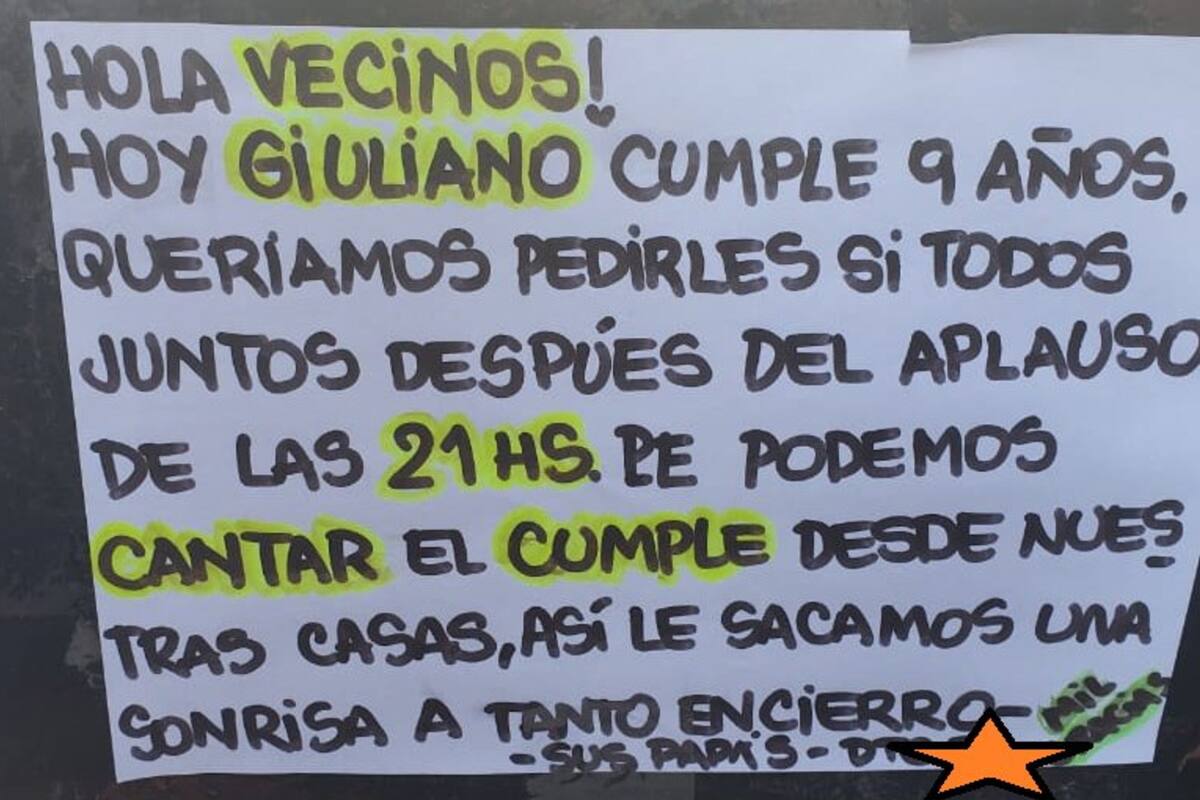 HOLA VECINOS!
HOY GIULIANO CUMPLE 9 AÑOS,
QUERÍAMOS PEDIRLES SI TODOS
JUNTOS DESPÚES DEL APLAUSO
DE LAS 21 HS. LE PODEMOS
CANTAR EL CUMPLE DESDE NUES
TRAS CASAS, ASÍ LE SACAMOS UNA
SONRISA A TANTO ENCIERRO- MIL GRACIAS
- SUS PAPÁS -